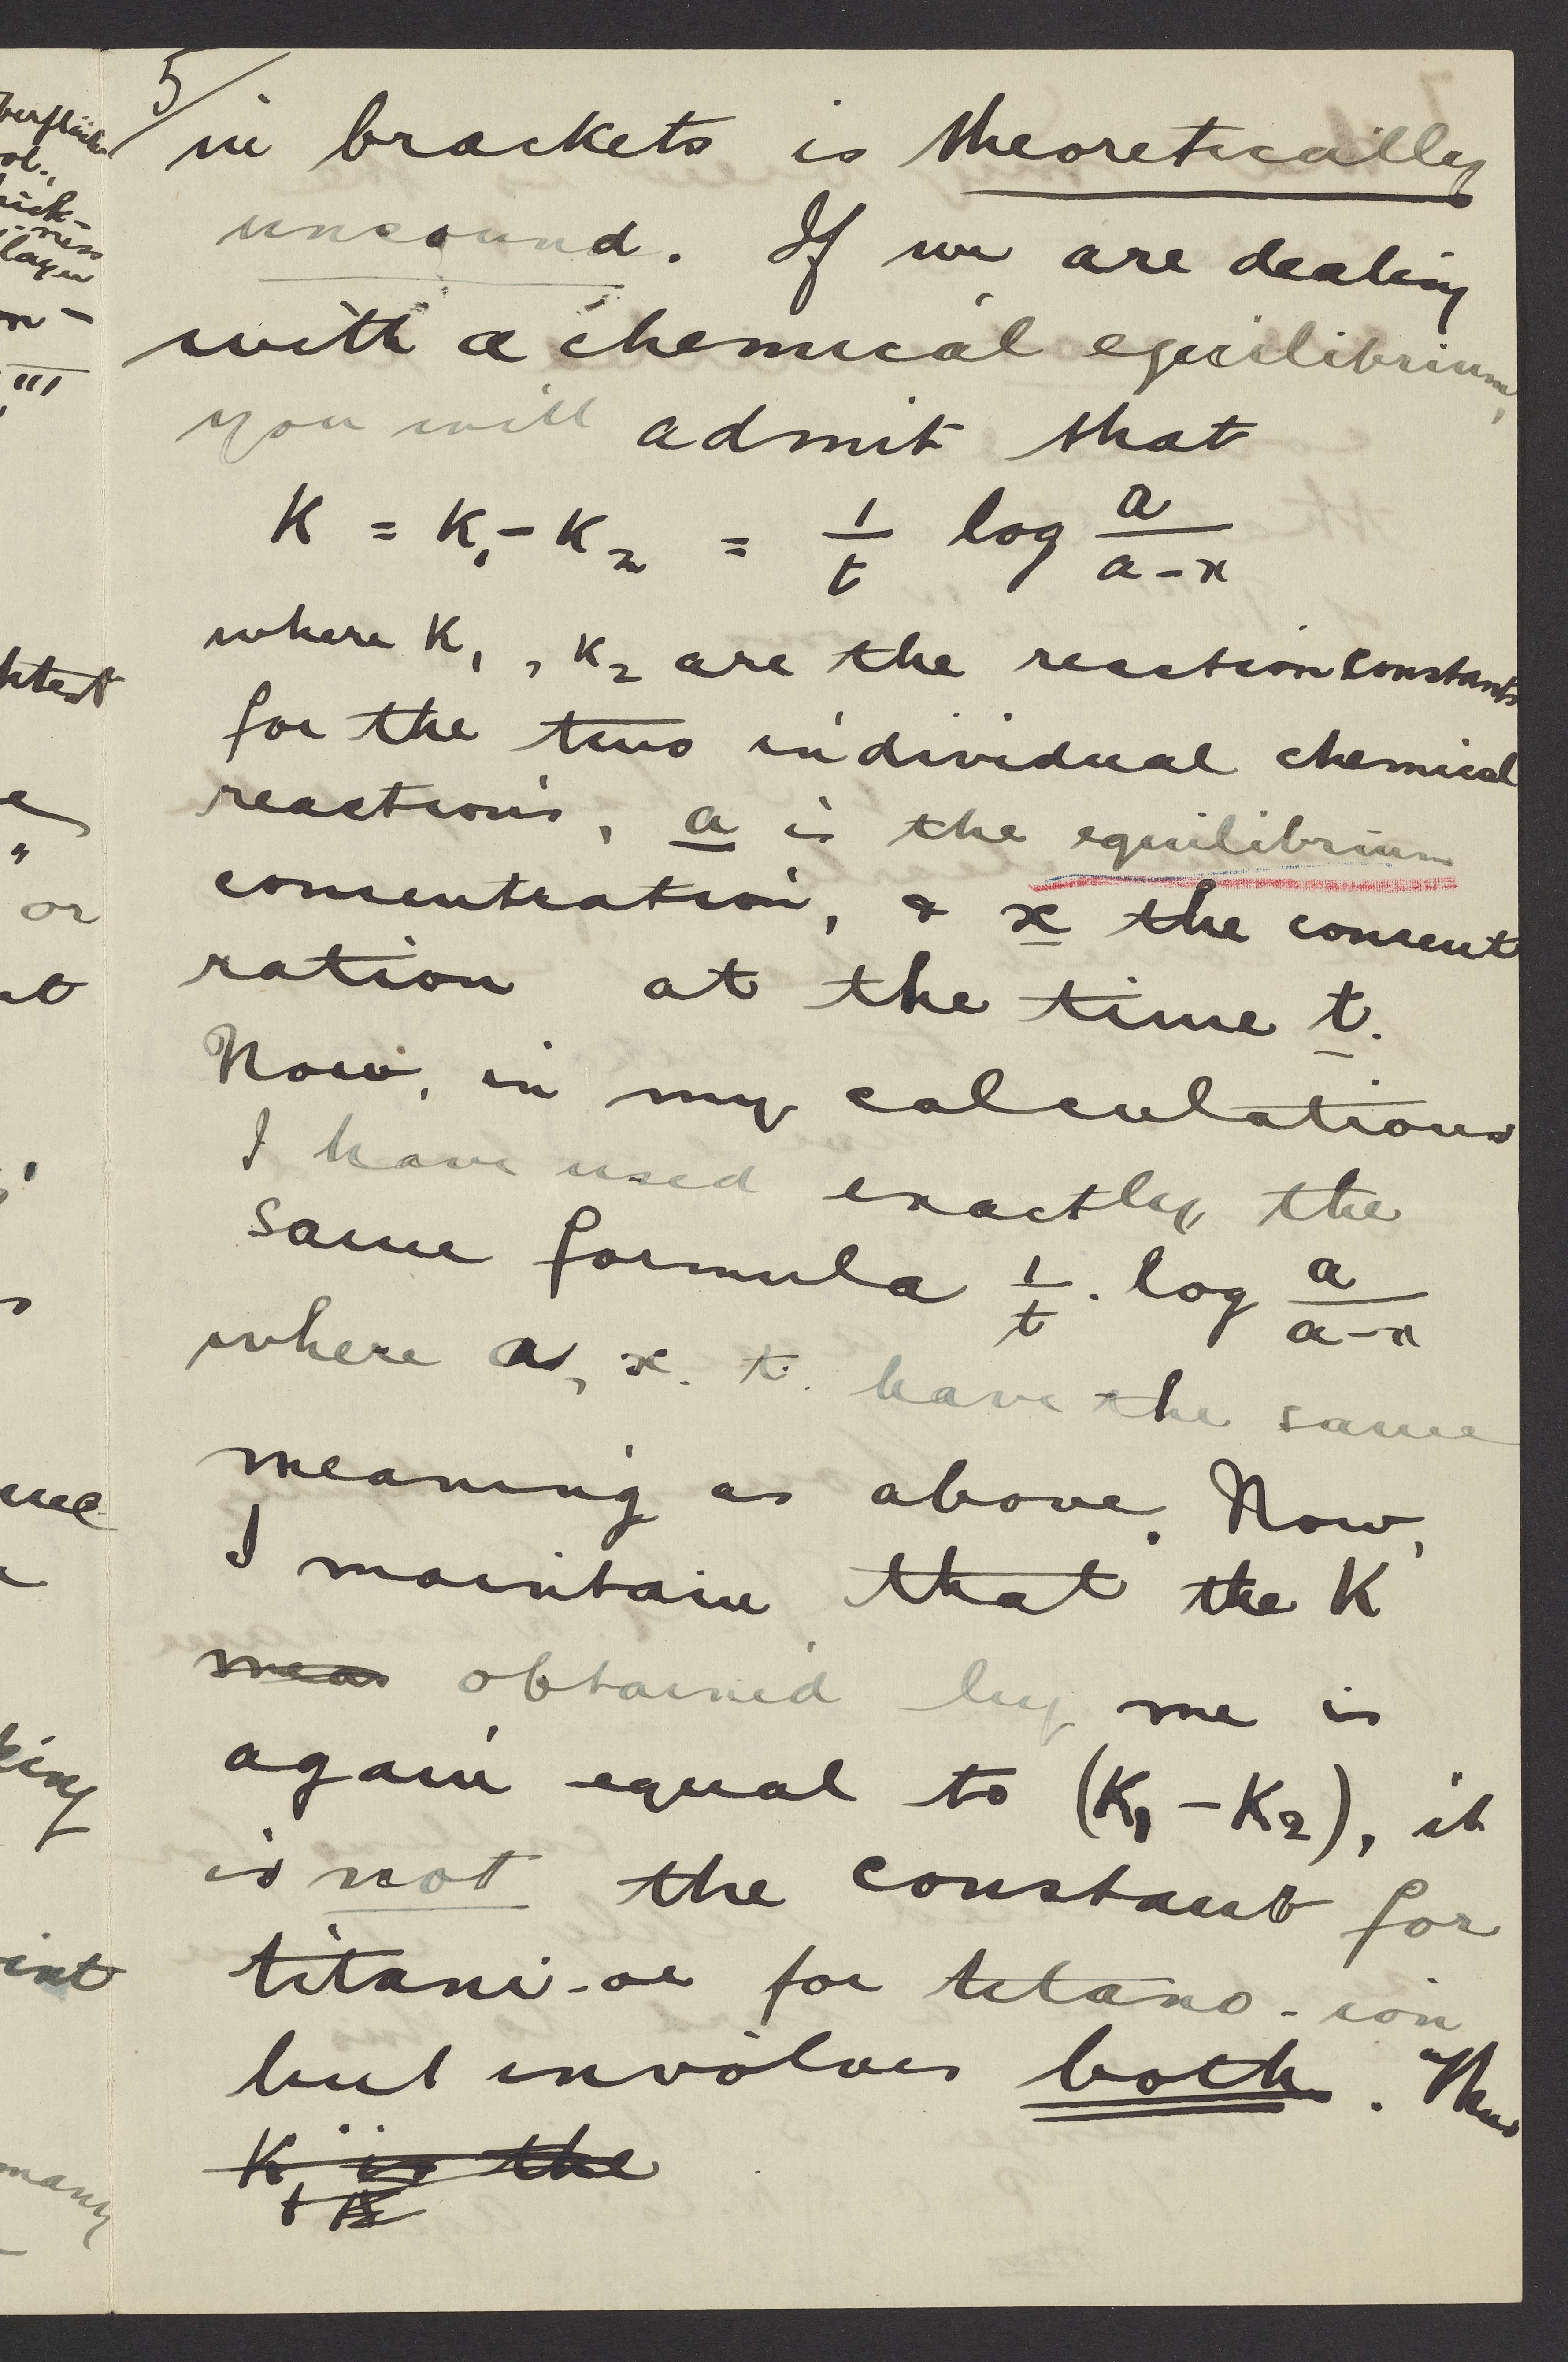 5/
in brackets is theoretically
unsound. If we are dealing
with a chemical equilibrium,
you will admit that
K = K₁ - K₂ = 1/t log a/a-x
where K₁, K₂ are the reaction constants
for the two individual chemical
reactions, a is the equilibrium
concentration, & x the concent
ration at the time t.
Now, in my calculations
I have used exactly the
same formula 1/t . log a/a-x
where a, x. t. have the same
meaning as above. Now,
I maintain that the K
meas obtained by me is
again equal to (K₁ - K₂), it
is not the constant for
titani- or for titano-ion
but involves both. Thus
K₁ is the
+ K₂
berfläche
lagen
or
king
many